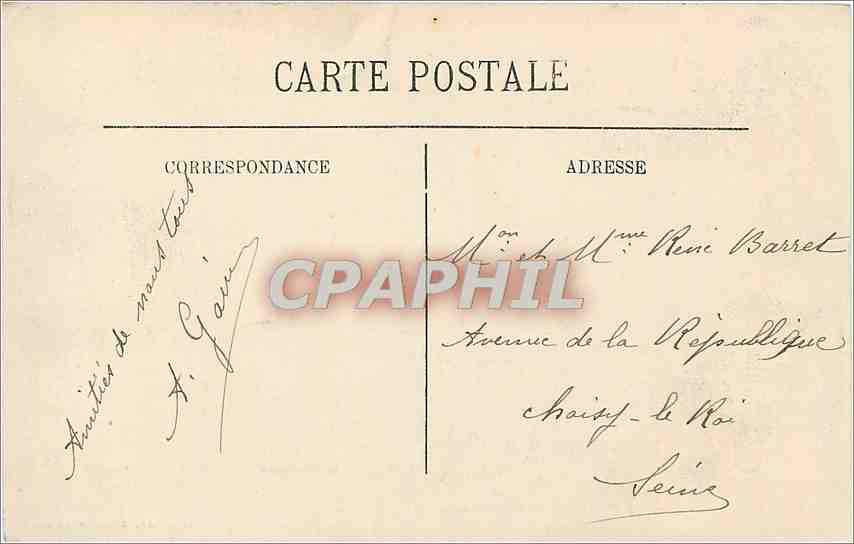 CARTE POSTALE
CORRESPONDANCE
Amitiés de nous tous
A.
ADRESSE
Mon. et Mme. René Barret
Avenue de la République
Choisy-le Roi
Seine
CPAPHIL